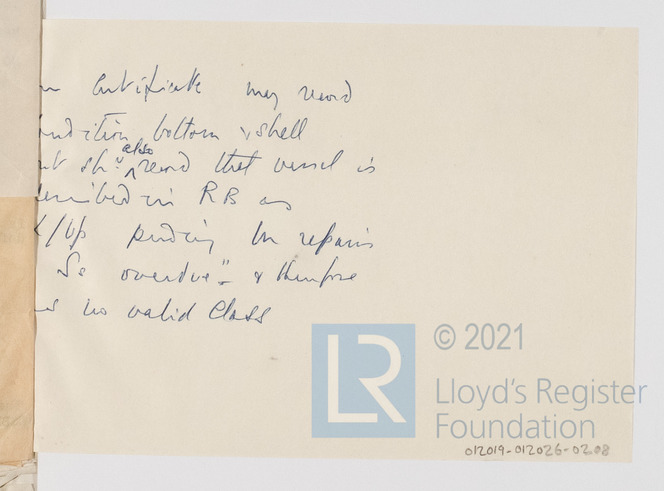 Certificate may record
ndition bottom shell
also
sh.d record that vessel is
cribed in RB as
L/Up pending Bm repairs
SS overdue" & therefore
s no valid Class
LR
© 2021
Lloyd's Register
Foundation
012019-012026-0208